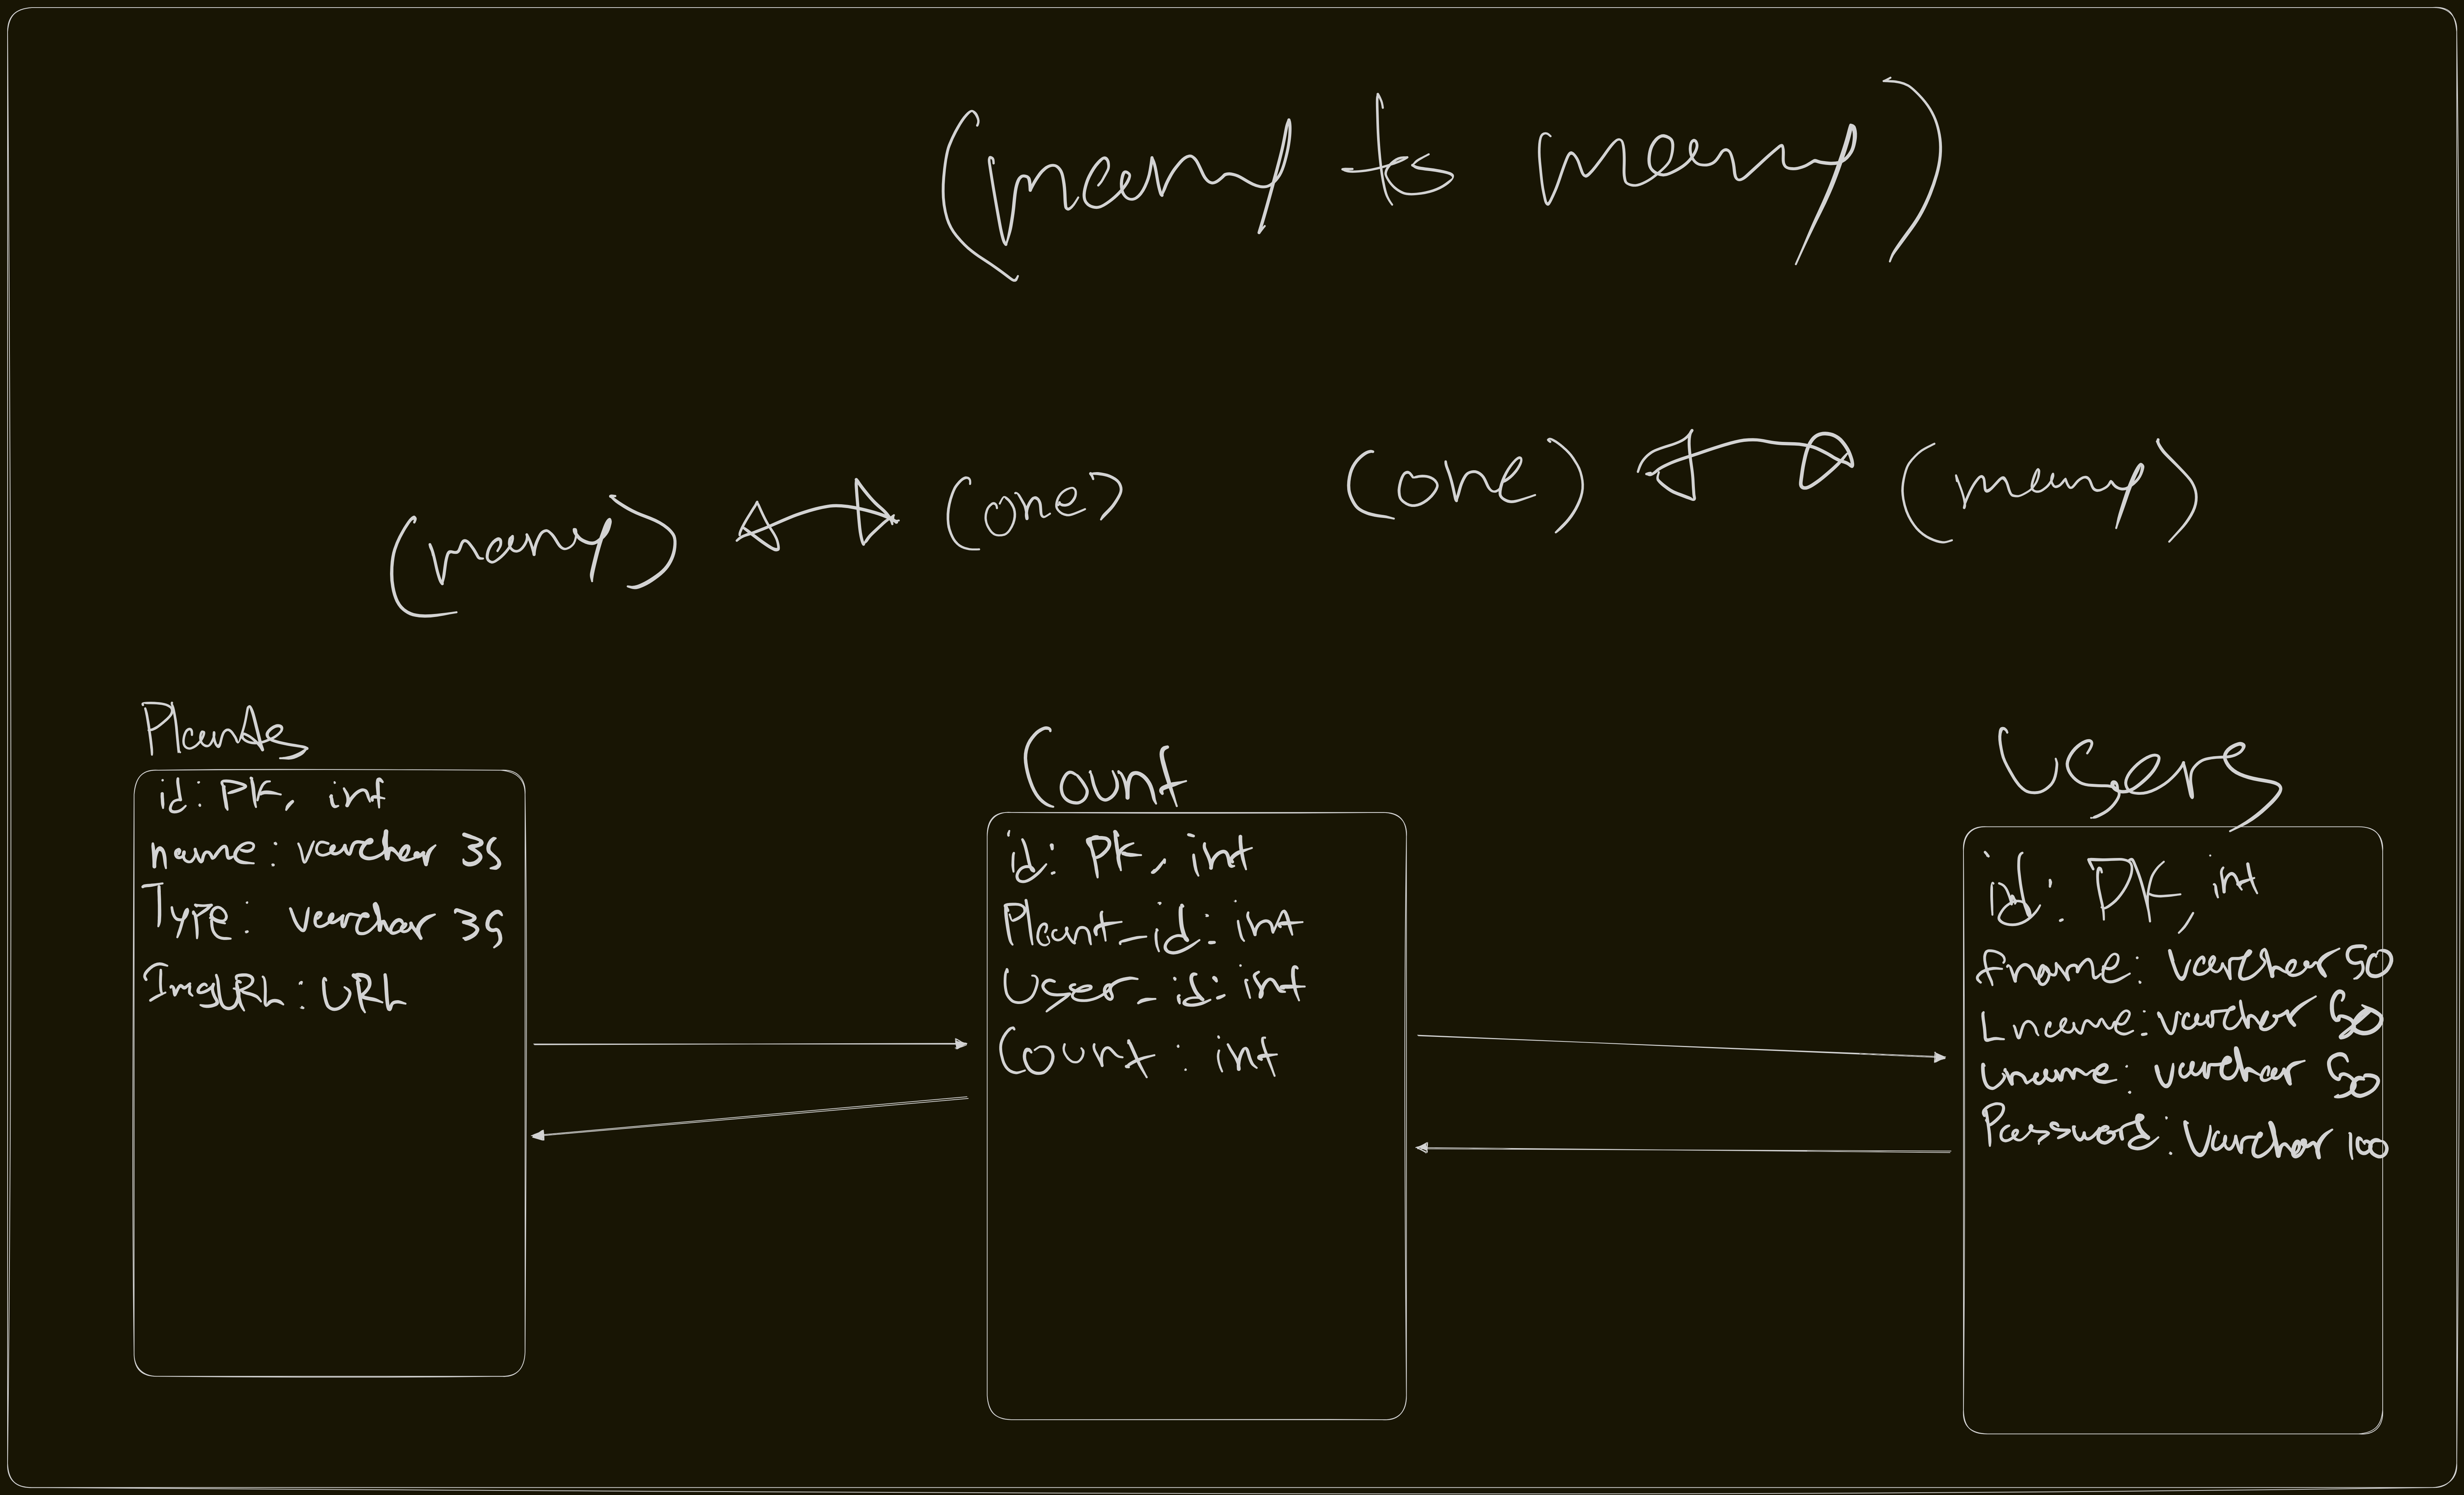 (many to many)
(many) (one)
(one) (many)
Plants
id: PK, int
name: varchar 35
Type: varchar 35
ImgURL: URL
Count
id: PK, int
Plant_id: int
User_id: int
Count: int
Users
id: PK, int
fname: varchar 50
Lname: varchar 50
Uname: varchar 50
Password: Varchar 100